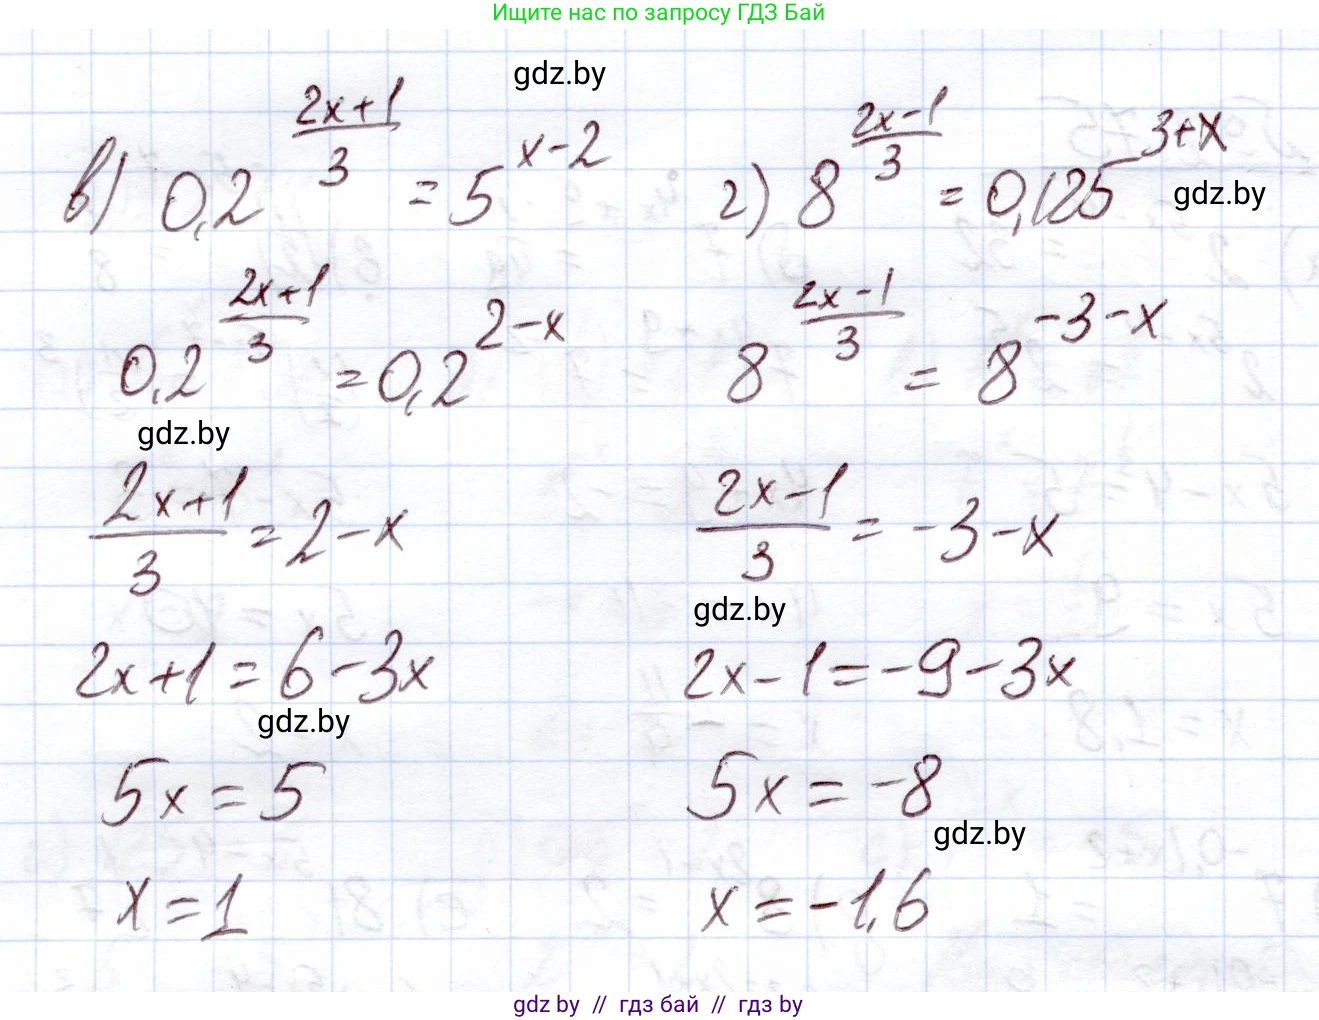 Ищите нас по запросу ГДЗ Бай
gdz.by
в) 0,2^((2x+1)/3) = 5^(x-2)
0,2^((2x+1)/3) = 0,2^(2-x)
gdz.by
(2x+1)/3 = 2-x
2x+1=6-3x
gdz.by
5x=5
x=1
г) 8^((2x-1)/3) = 0,125^(3+x)
gdz.by
8^((2x-1)/3) = 8^(-3-x)
(2x-1)/3 = -3-x
gdz.by
2x-1=-9-3x
5x=-8
gdz.by
x=-1,6
gdz by // гдз бай // гдз by